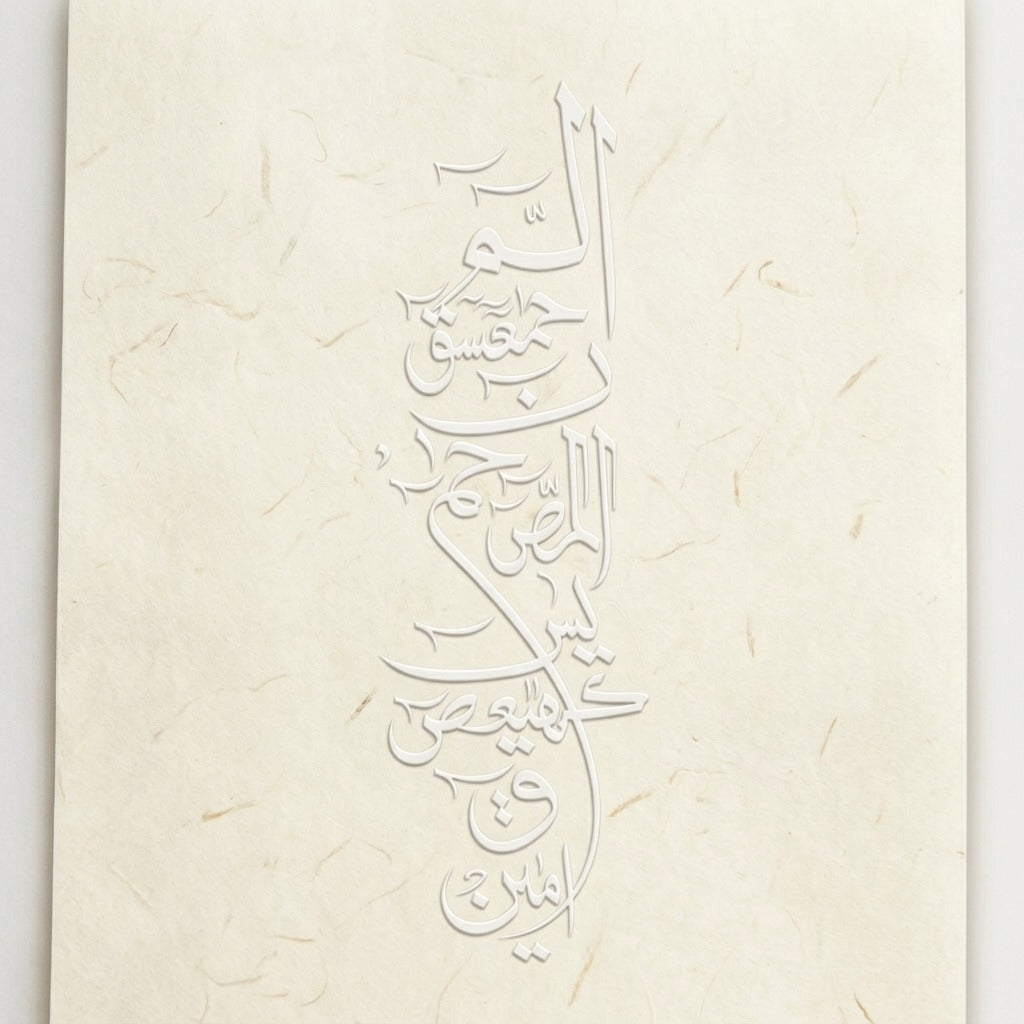 الٓمّٓ
حمٓعٓسٓقٓ
نٓ
حٰمٓ
الٓمّٓصٓ
يٰسٓ
كٓهٰيٰعٓصٓ
قٓ
امين